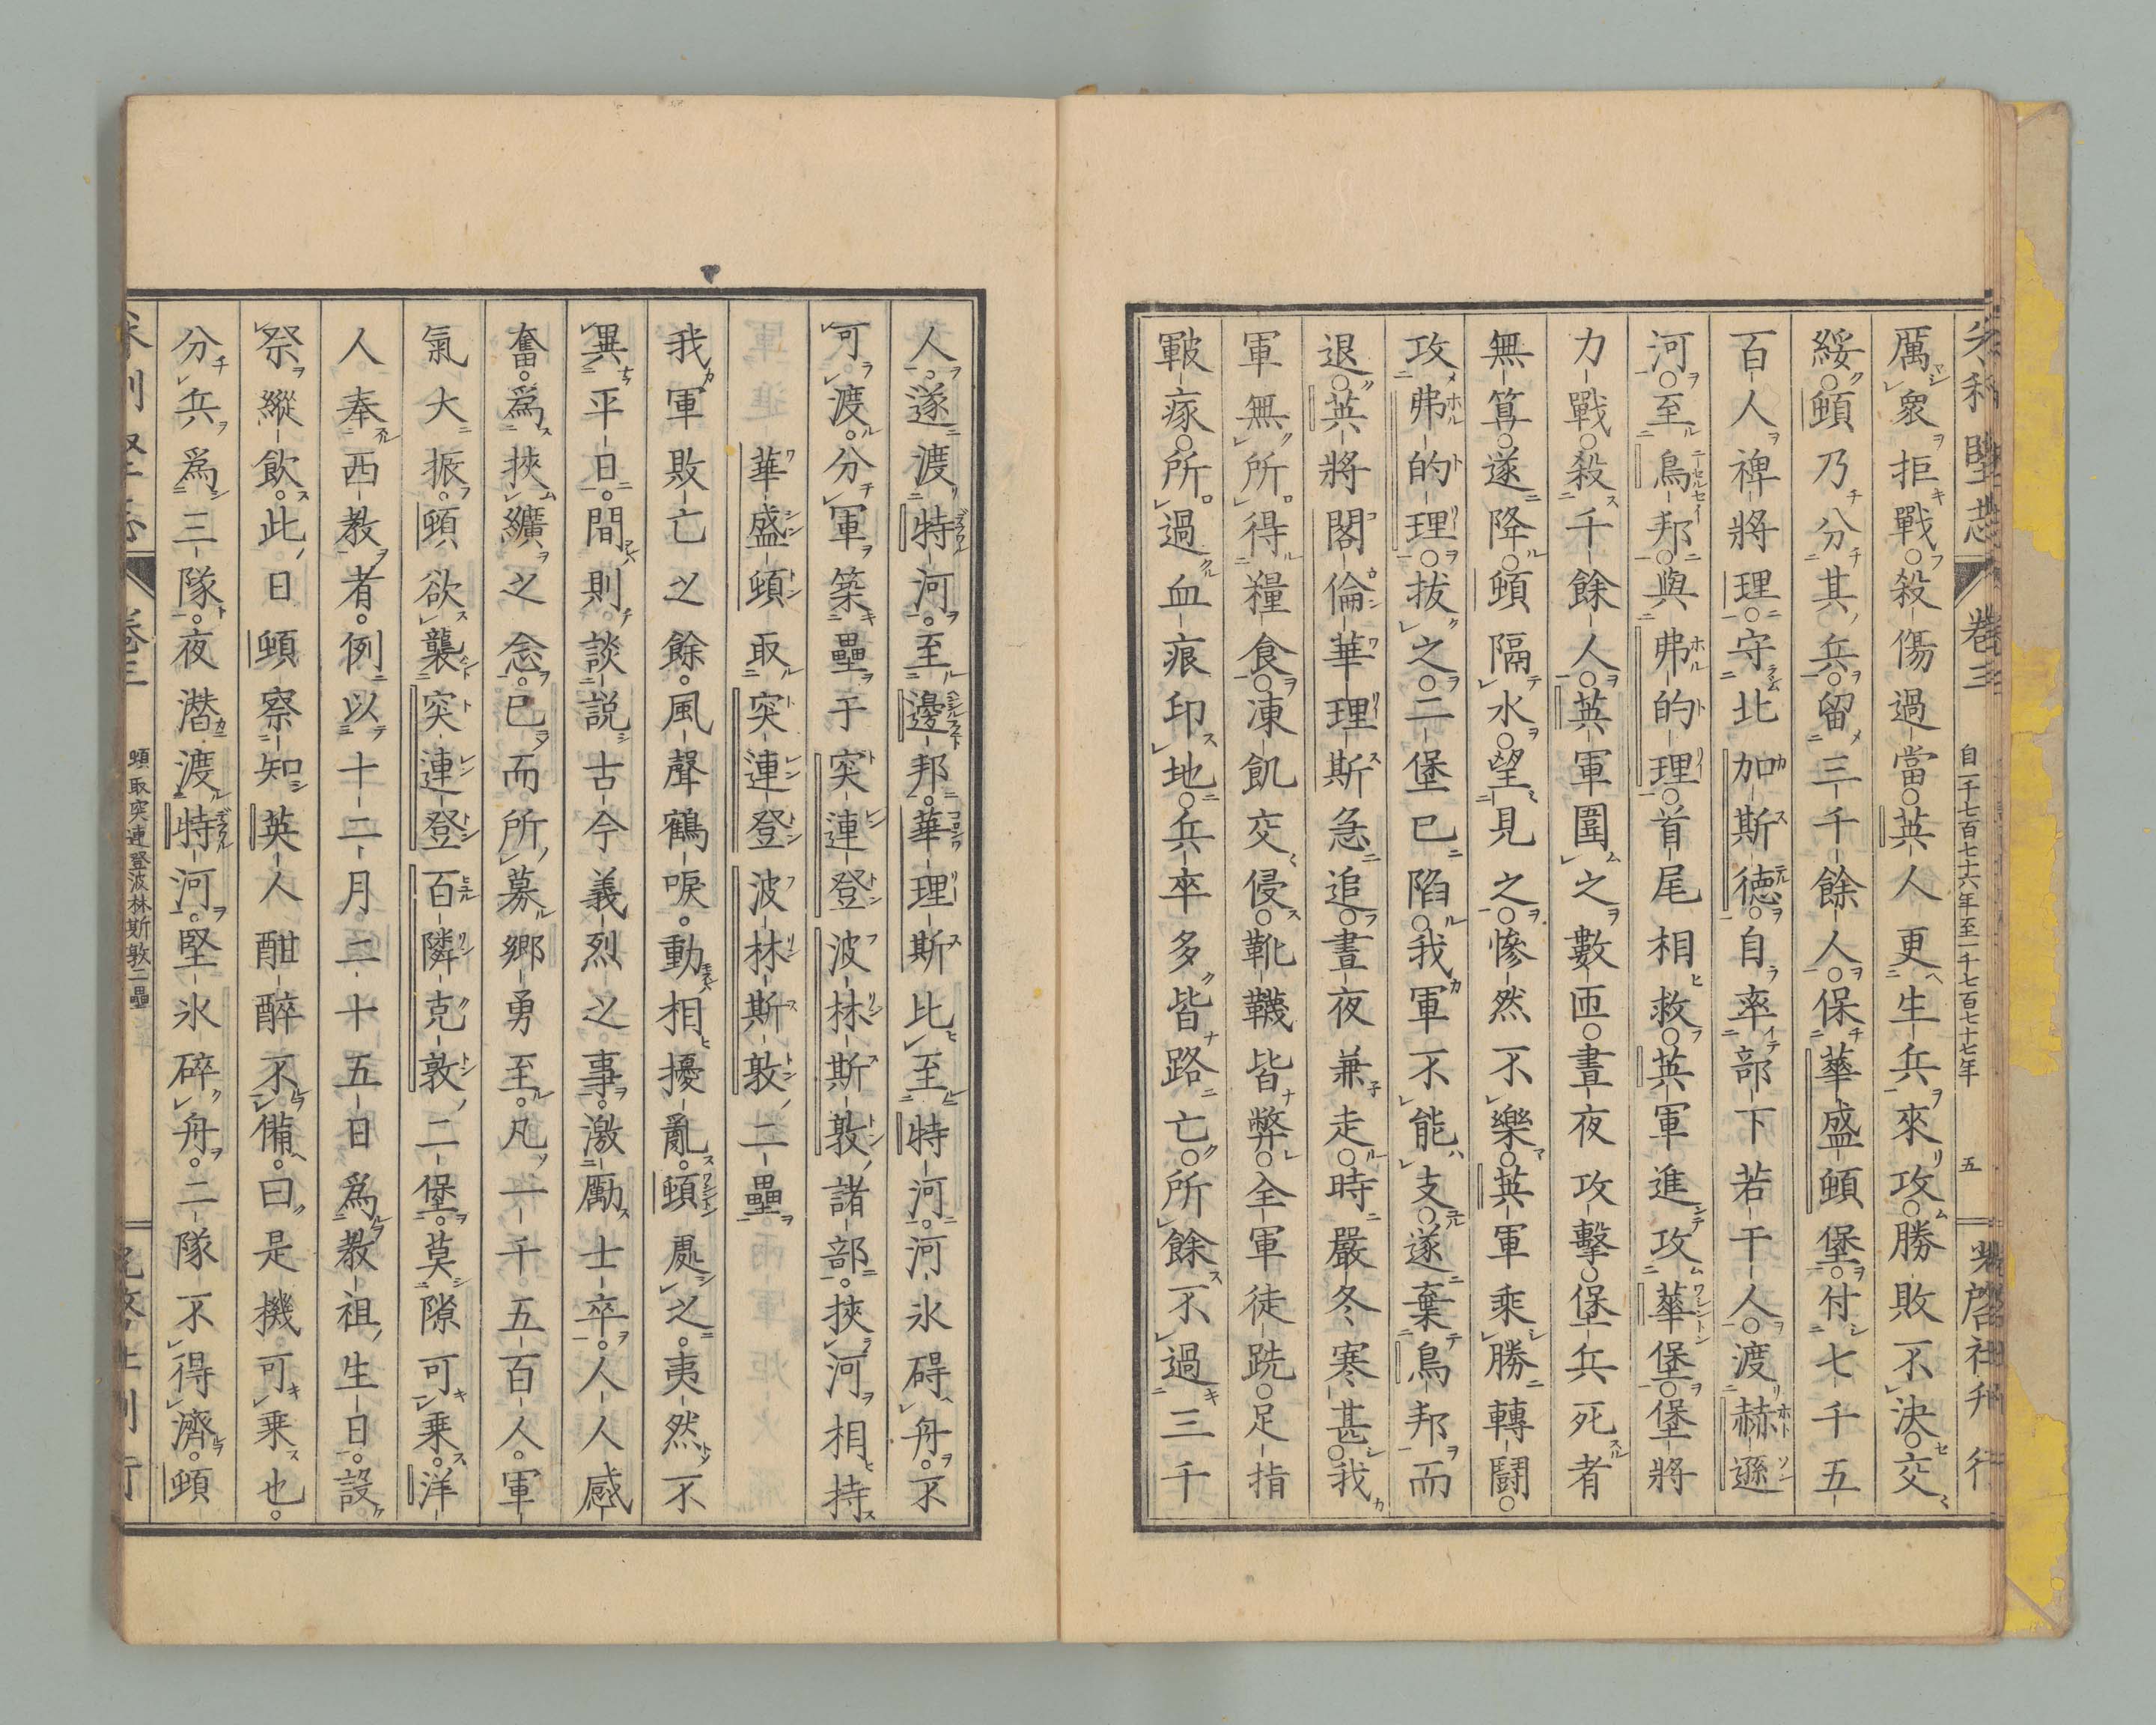 自一千七百七十六年至一千七百七十七年
五
厲衆拒戰殺傷過當英人更生兵來攻勝敗不決交
綏頓乃分其兵留三千餘人保華盛頓堡付七千五
百人裨將理守北加斯德自率部下若干人渡赫遜
河至鳥邦與弗的理首尾相救英軍進攻華堡堡將
力戰殺千餘人英軍圍之數匝晝夜攻擊堡兵死者
無算遂降頓隔水望見之慘然不樂英軍乘勝轉鬪
攻弗的理拔之二堡已陷我軍不能支遂棄鳥邦而
退英將閣倫華理斯急追晝夜兼走時嚴冬寒甚我
軍無所得糧食凍飢交侵靴韈皆弊全軍徒跣足指
皸瘃所過血痕印地兵卒多皆路亡所餘不過三千
人遂渡特河至邊邦華理斯比至特河河氷碍舟不
可渡分軍築壘于突連登波林斯敦諸部挾河相持
華盛頓取突連登波林斯敦二壘
我軍敗亡之餘風聲鶴唳動相擾亂頓處之夷然不
異平日間則談說古今義烈之事激勵士卒人人感
奮爲挾纊之念已而所募鄉勇至凡一千五百人軍
氣大振頓欲襲突連登百隣克敦二堡莫隙可乘洋
人奉西教者例以十二月二十五日爲教祖生日設
祭縱飲此日頓察知英人酣醉不備曰是機可乘也
分兵爲三隊夜潛渡特河堅氷碎舟二隊不得濟頓
卷三
頓取突連登波林斯敦二壘